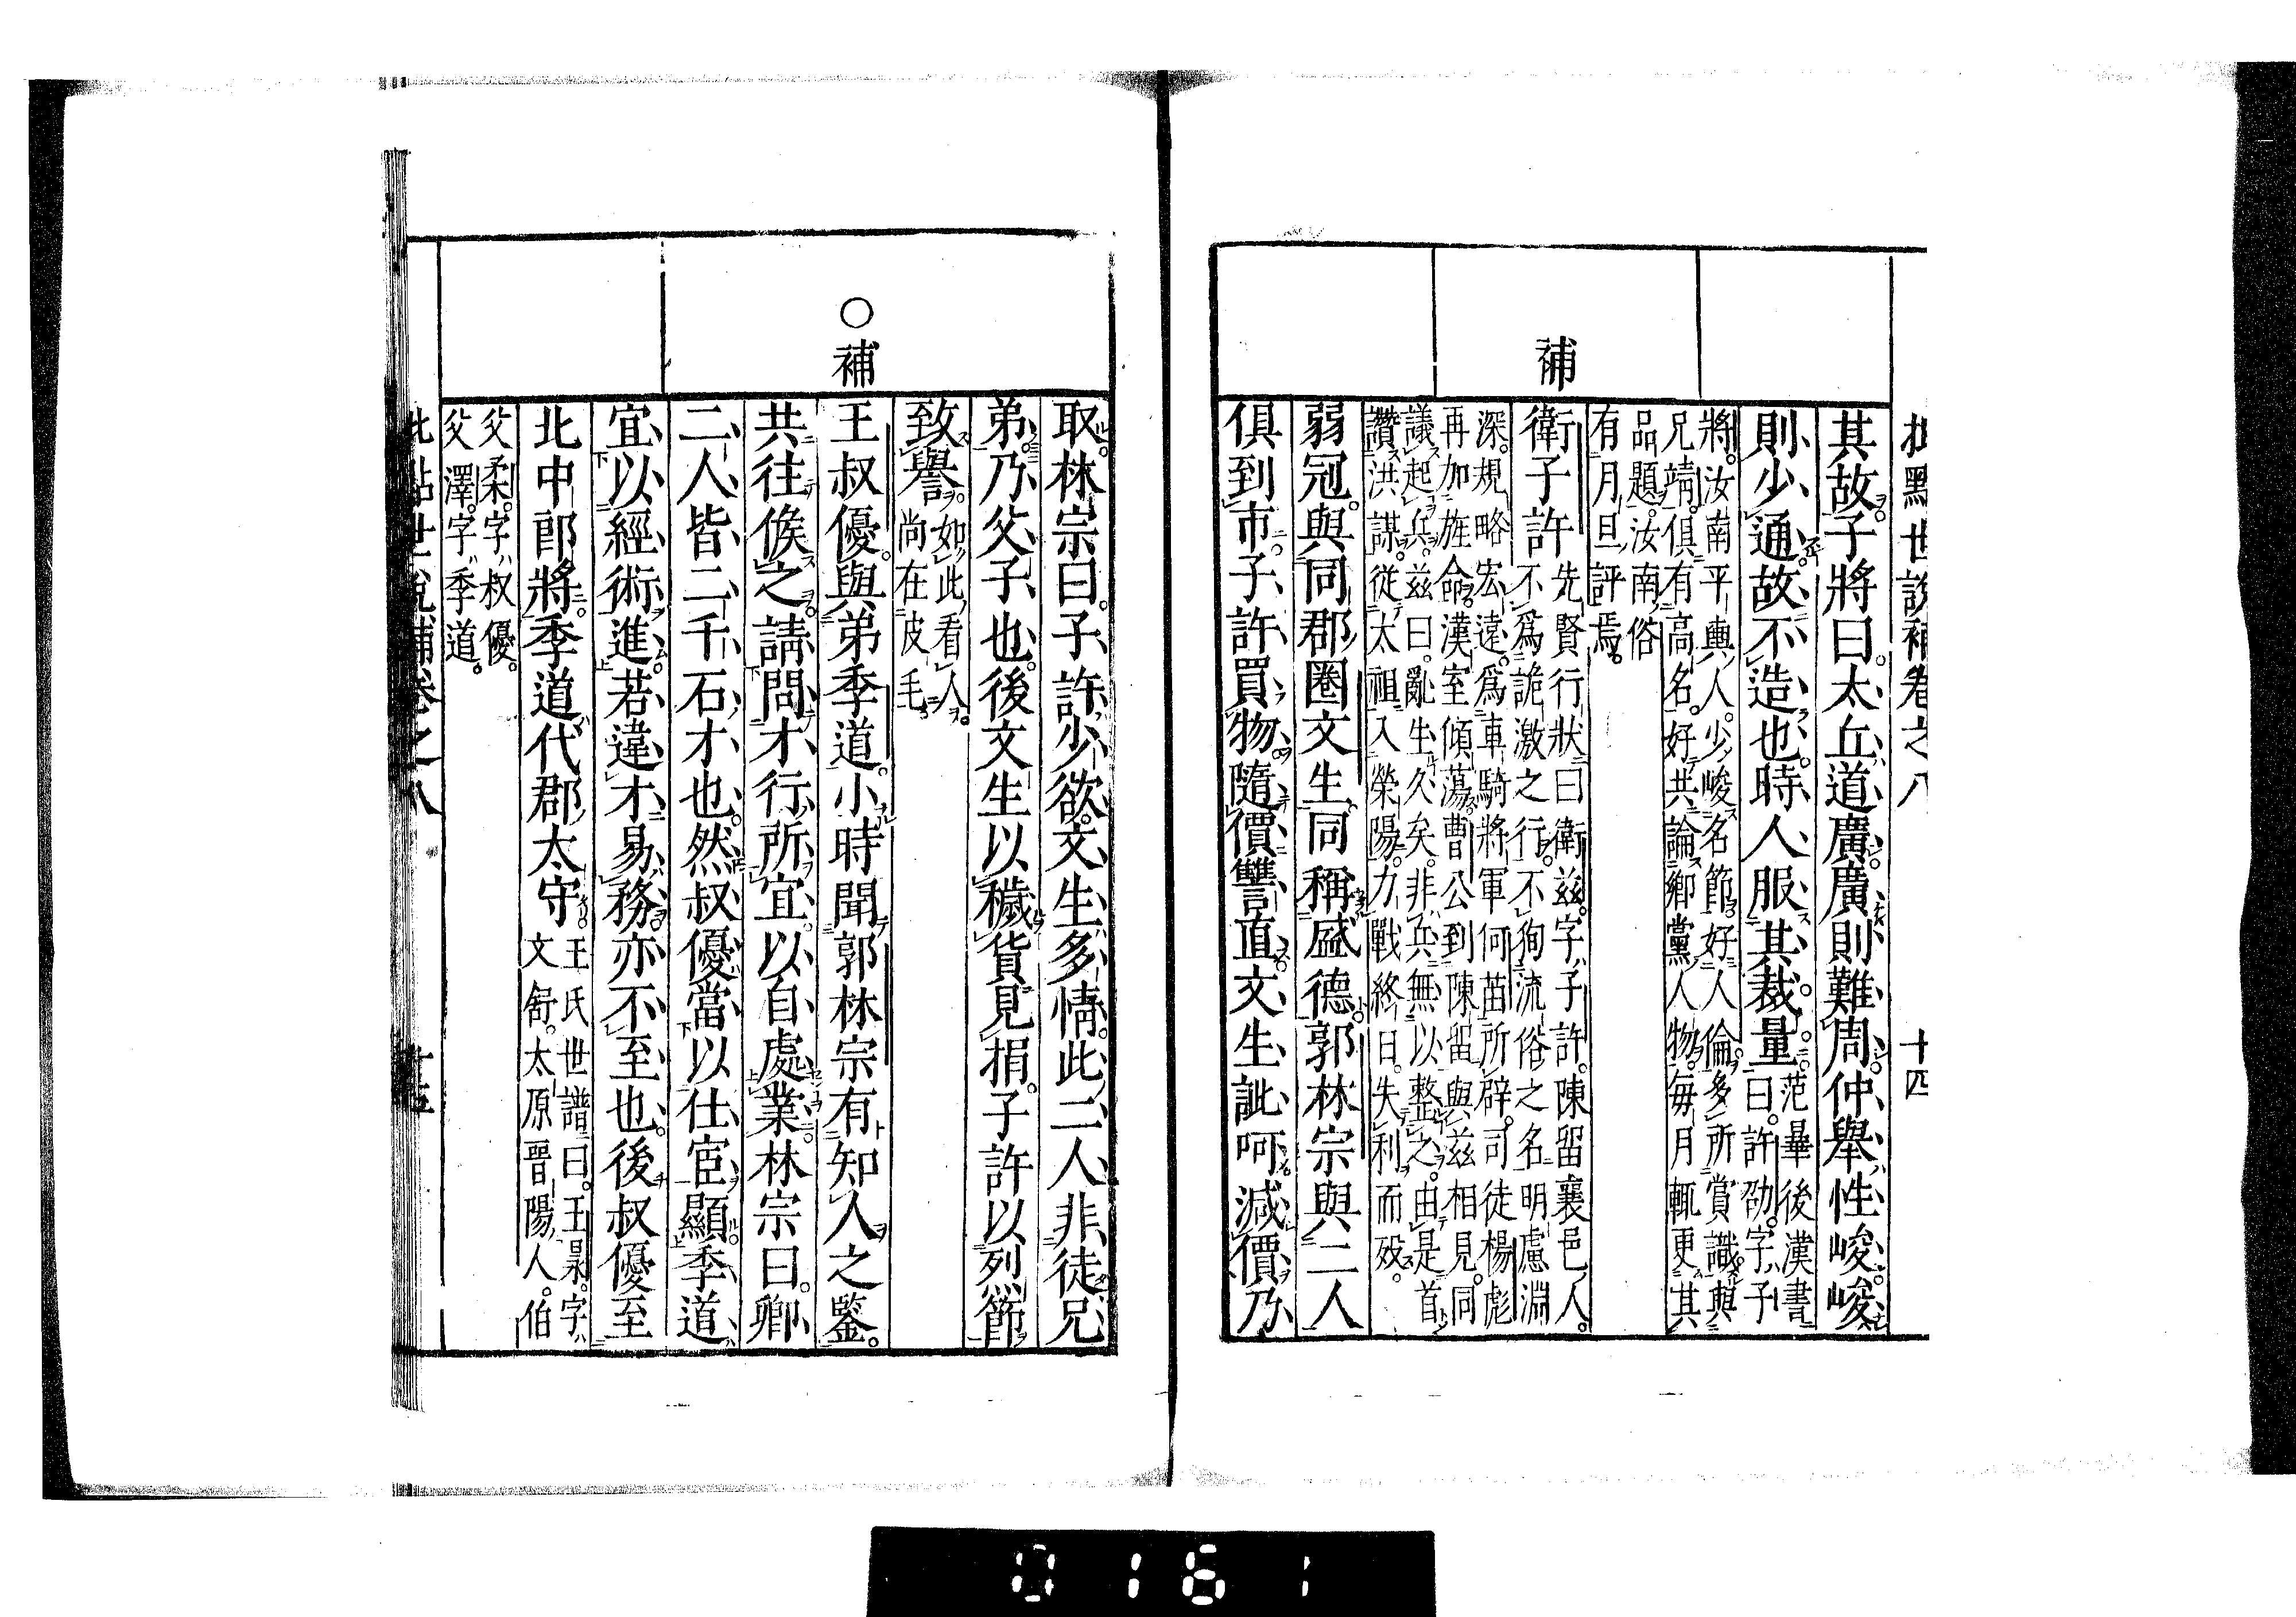 批點世說補卷之八　十四
其故子將曰太丘道廣廣則難周仲舉性峻峻
則少通故不造也時人服其裁量
范曄後漢書
曰許劭字子
將汝南平輿人少峻名節好人倫多所賞識與
兄靖俱有高名好共論鄉黨人物每月輒更其
品題汝南俗
有月旦評焉
補
衛子許
先賢行狀曰衛茲字子許陳留襄邑人
不為詭激之行不徇流俗之名明慮淵
深規略宏遠為車騎將軍何苗所辟司徒楊彪
再加旌命漢室傾蕩曹公到陳留與茲相見同
議起兵茲曰亂生久矣非兵無以整之由是首
讚洪謀從太祖入滎陽力戰終日失利而歿
弱冠與同郡圈文生同稱盛德郭林宗與二人
俱到市子許買物隨價讐直文生訾呵減價乃
取林宗曰子許少欲文生多情此二人非徒兄
弟乃父子也後文生以穢貨見捐子許以烈節
致譽
如此看人
尚在皮毛
○補
王叔優與弟季道小時聞郭林宗有知人之鑒
共往候之請問才行所宜以自處業林宗曰卿
二人皆二千石才也然叔優當以仕宦顯季道
宜以經術進若違才易務亦不至也後叔優至
北中郎將季道代郡太守
王氏世譜曰王㫤字
文舒太原晉陽人伯
父柔字叔優
父澤字季道
批點世說補卷之八